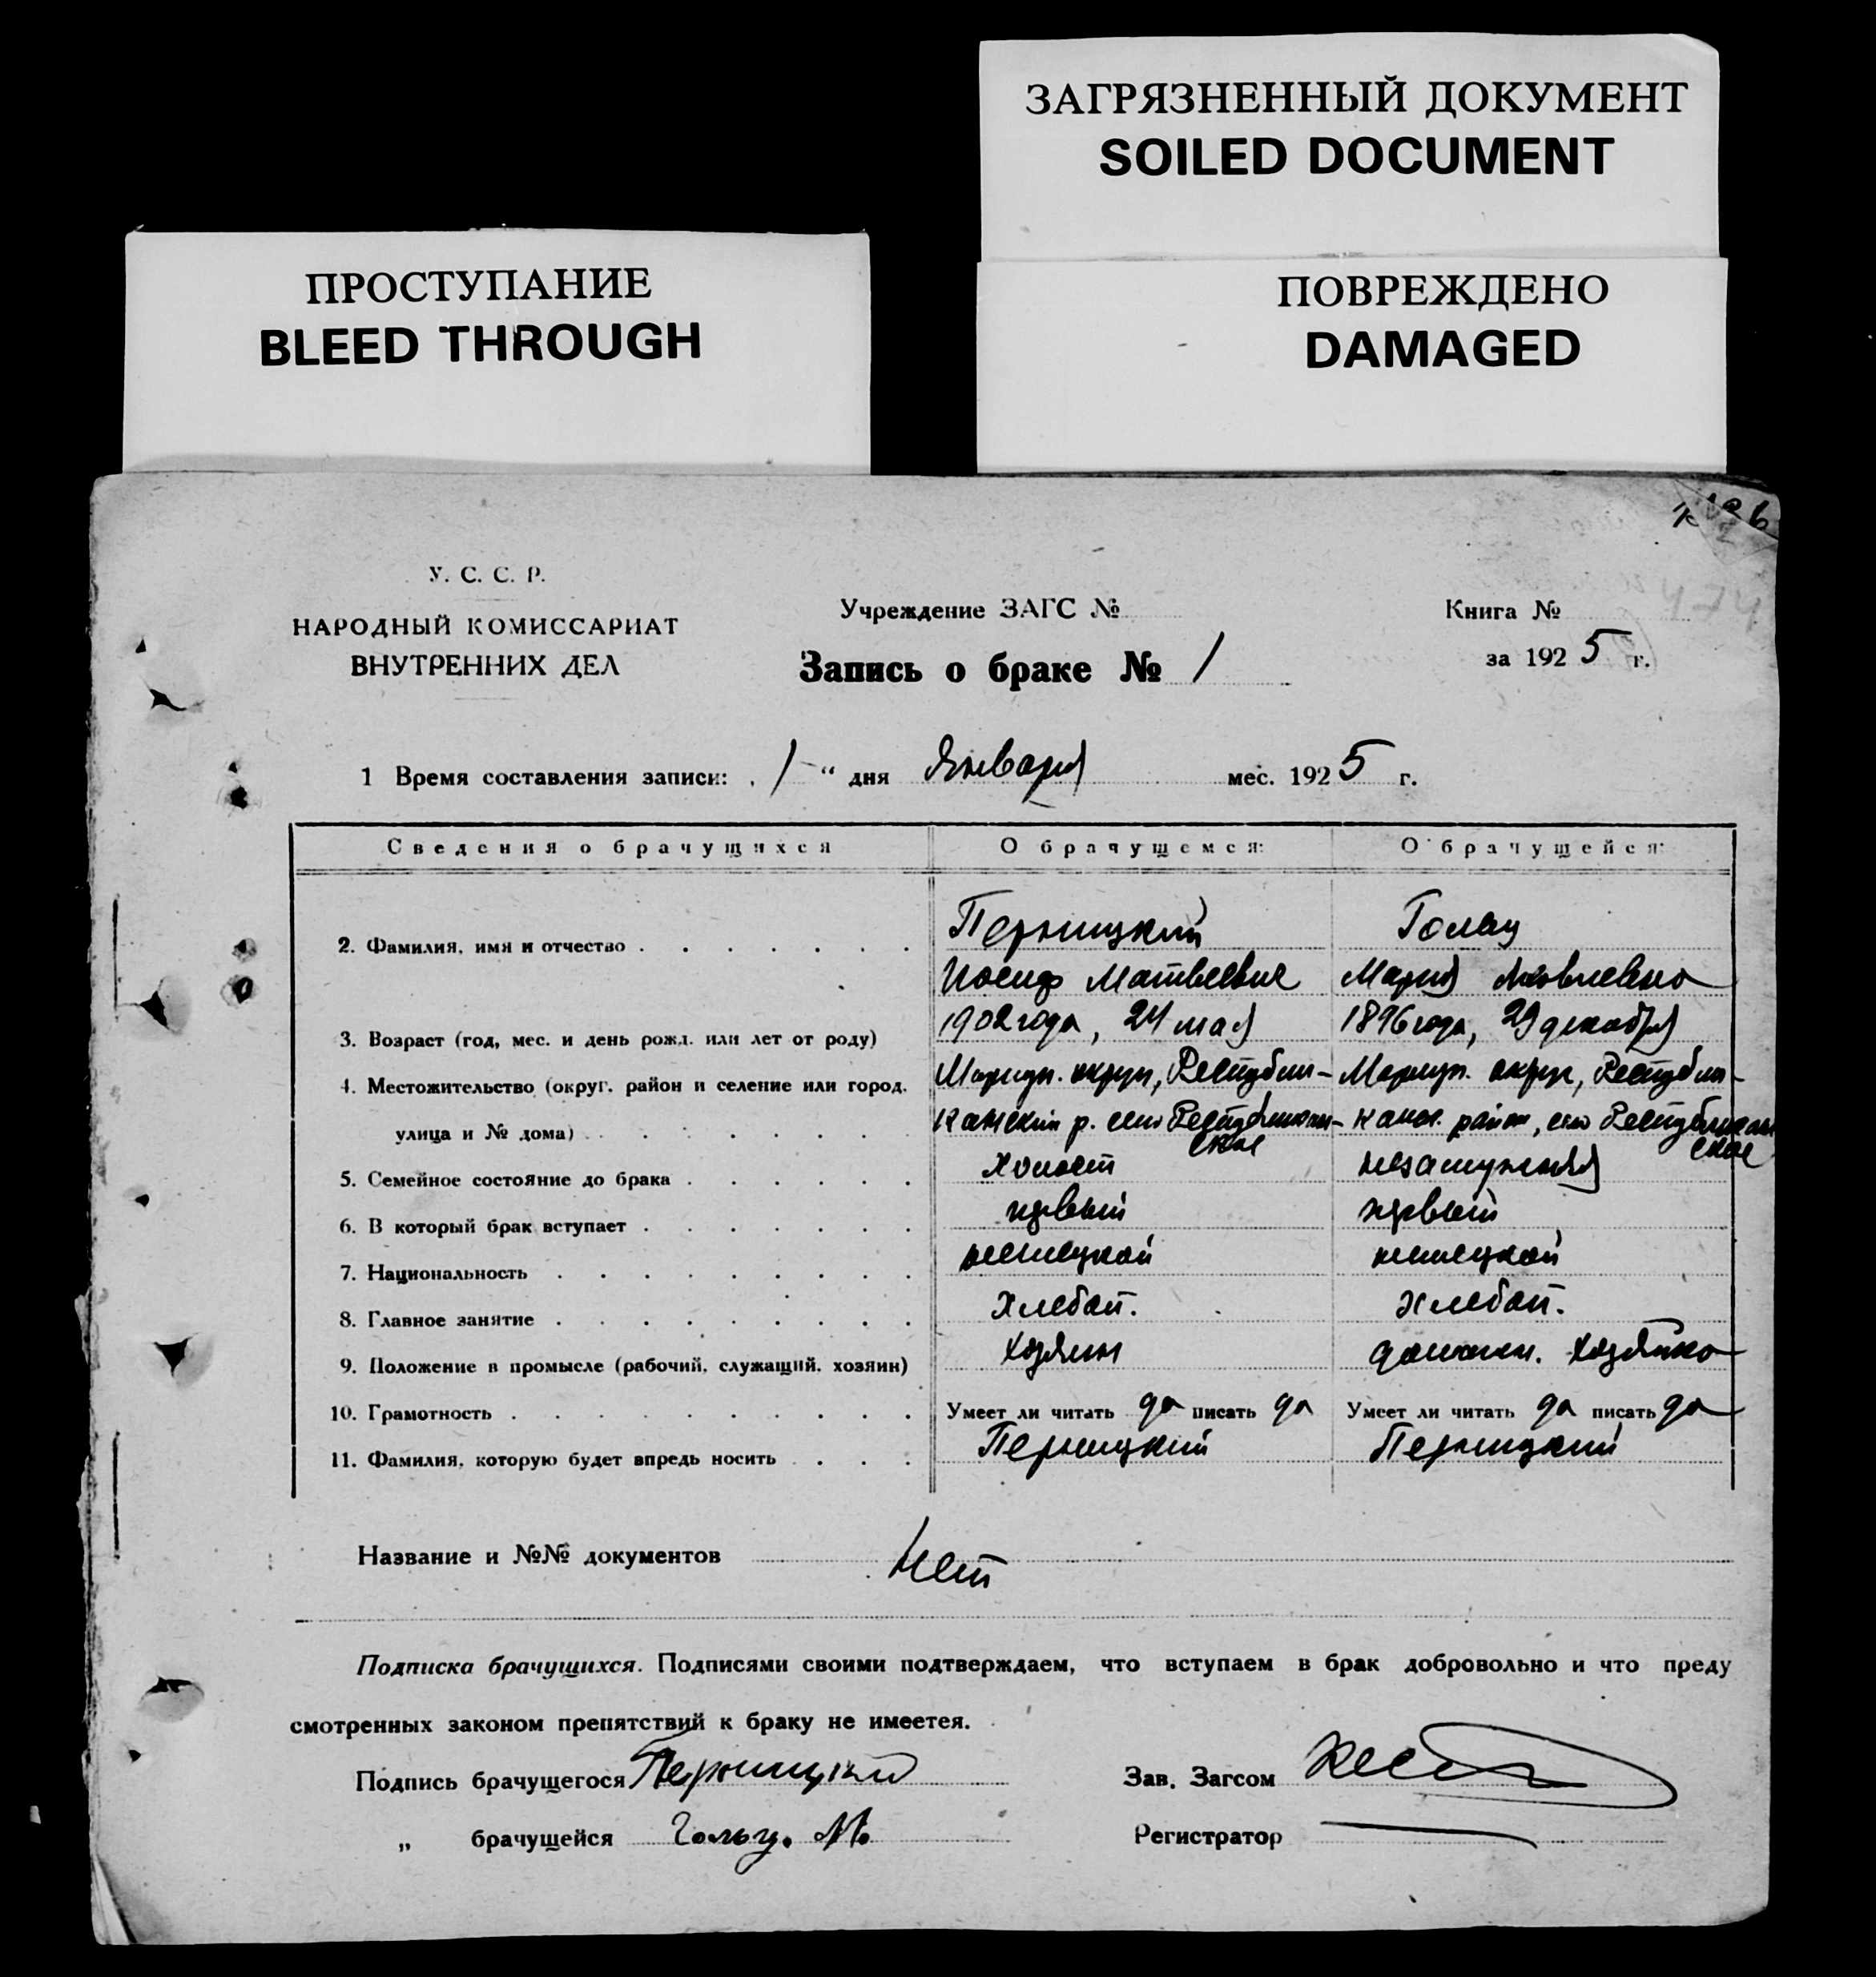 ЗАГРЯЗНЕННЫЙ ДОКУМЕНТ
SOILED DOCUMENT
ПРОСТУПАНИЕ
BLEED THROUGH
ПОВРЕЖДЕНО
DAMAGED
У. С. С. Р.
НАРОДНЫЙ КОМИССАРИАТ
ВНУТРЕННИХ ДЕЛ
Учреждение ЗАГС №
Запись о браке № 1
Книга № 474
за 1925 г.
1 Время составления записи: „1“ дня Января мес. 1925 г.
Сведения о брачущихся О брачущемся: О брачущейся:
2. Фамилия, имя и отчество Перницкий Гольц
Иосиф Матвеевич Мария Яковлевна
3. Возраст (год, мес. и день рожд. или лет от роду) 1902 года, 24 мая 1896 года, 29 декабря
4. Местожительство (округ, район и селение или город, Мариуп. округ, Республи- Мариуп. округ, Республи-
улица и № дома) канский р. село Республикан- канск. район, село Республикан
ское ское
5. Семейное состояние до брака холост незамужняя
6. В который брак вступает первый первый
7. Национальность немецкой немецкой
8. Главное занятие Хлебоп. Хлебоп.
9. Положение в промысле (рабочий, служащий, хозяин) хозяин домашн. хозяйка
10. Грамотность Умеет ли читать да писать да Умеет ли читать да писать да
11. Фамилия, которую будет впредь носить Перницкий Перницкий
Название и №№ документов Нет
Подписка брачущихся. Подписями своими подтверждаем, что вступаем в брак добровольно и что преду
смотренных законом препятствий к браку не имеется.
Подпись брачущегося Перницкий Зав. Загсом
„ брачущейся Гольц. М. Регистратор